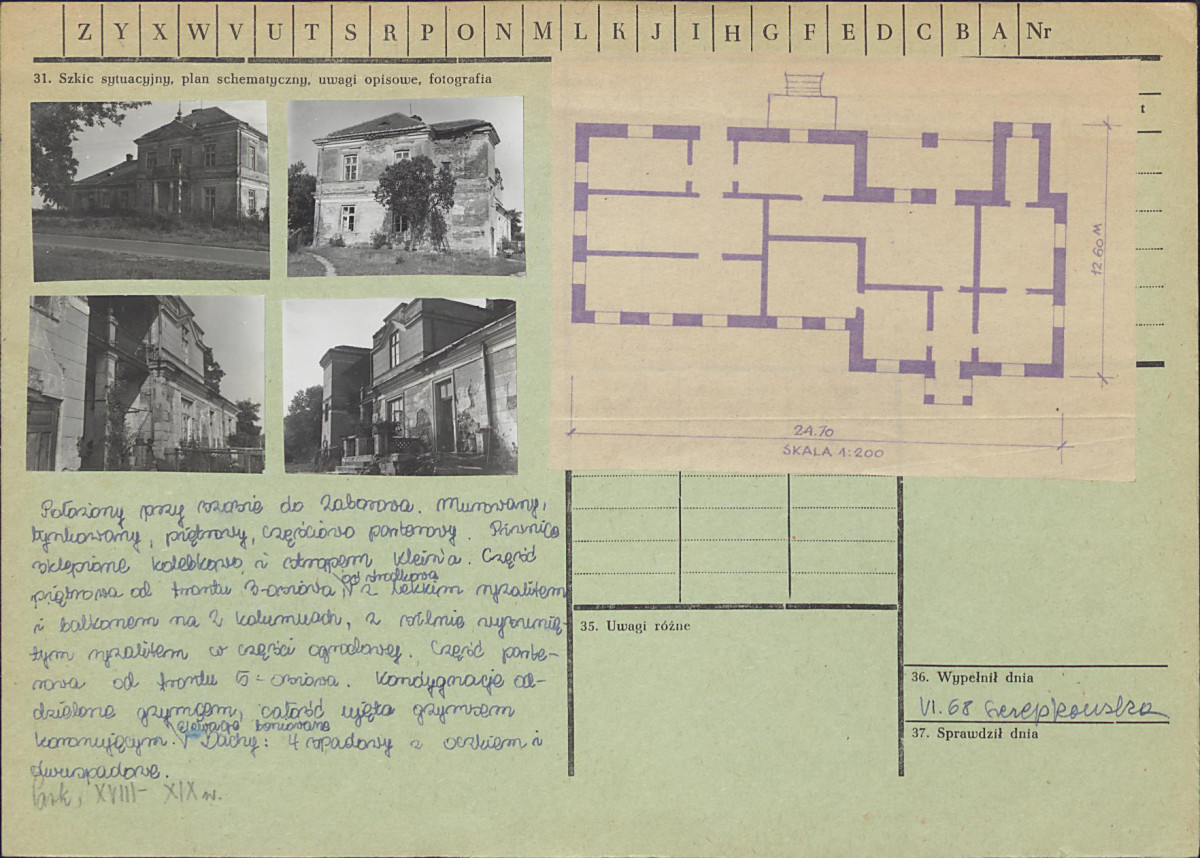 Z Y X W V U T S R P O N M L K J I H G F E D C B A Nr
31. Szkic sytuacyjny, plan schematyczny, uwagi opisowe, fotografia
t
12.60 M
24.70
SKALA 1:200
Położony przy szosie do Zaborowa. Murowany,
tynkowany, piętrowy, częściowo parterowy. Piwnice
sklepione kolebkowo i stropem Klein'a. Część
piętrowa od frontu 3-osiowa od środkowa z lekkim ryzalitem
i balkonem na 2 kolumnach, z silnie wysunię-
tym ryzalitem w części ogrodowej. Część parte-
rowa od frontu 5-osiowa. Kondygnacje od-
dzielone gzymsem, całość ujęta gzymsem
koronującym. Elewacje boniowane Dachy: 4 spadowy z oczkiem i
dwuspadowe.
Park, XVIII- XIX w.
35. Uwagi różne
36. Wypełnił dnia
VI.68
37. Sprawdził dnia